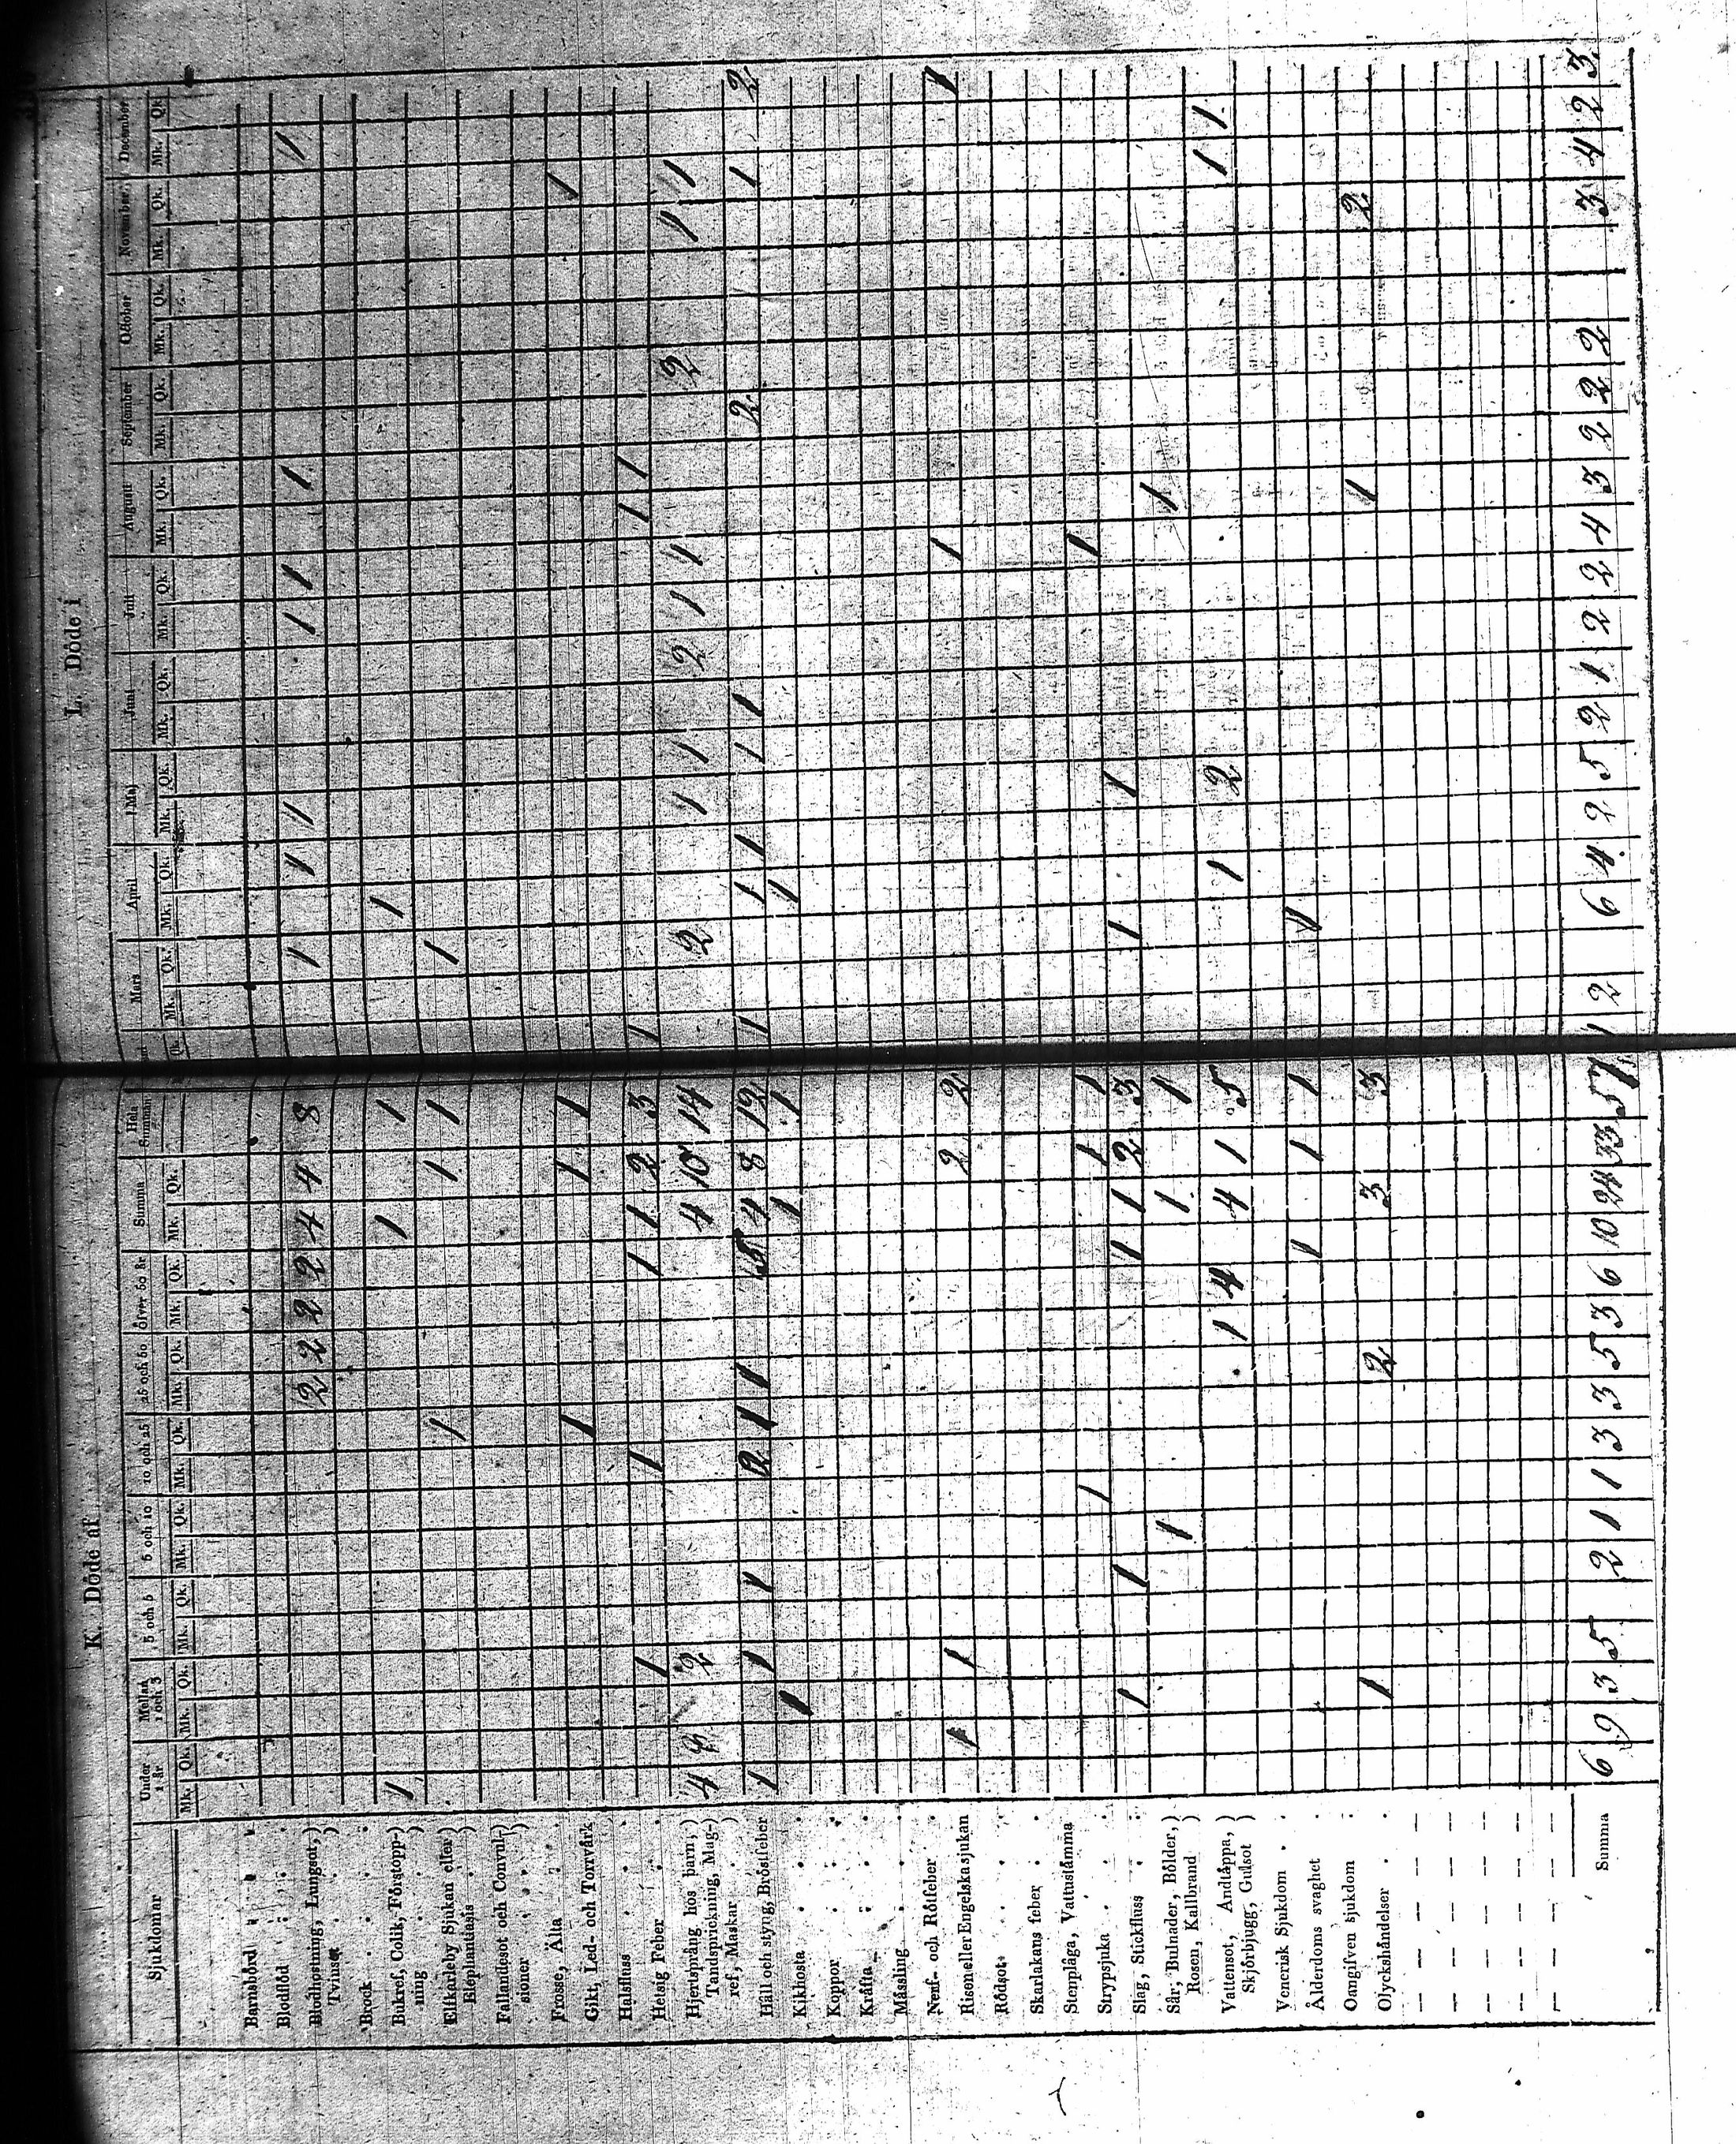 K. Döde af
L. Döde i
Sjukdomar
Under 1 år
Mellan 1 och 3
3 och 5
5 och 10
10 och 25
25 och 50
öfver 50 år
Summa
Hela Summan
Mars
April
Maj
Juni
Juli
Augusti
September
October
November
December
Mk. Qk. Mk. Qk. Mk. Qk. Mk. Qk. Mk. Qk. Mk. Qk. Mk. Qk. Mk. Qk.
Qk. Mk. Qk. Mk. Qk. Mk. Qk. Mk. Qk. Mk. Qk. Mk. Qk. Mk. Qk. Mk. Qk. Mk. Qk. Mk. Qk.
Barnsbörd
Blodflöd
Blodhostning, Lungsot,)
Tvinsot ) 2 2 2 2 4 4 8 1 1 1 1 1 1 1
Brock
Bukref, Colik, Förstopp-)
ning ) 1 1 1 1
Elfkarleby Sjukan eller)
Elephantiasis ) 1 1 1 1
Fallandesot och Convul-)
sioner )
Frosse, Älta
Gikt, Led- och Torrvärk 1 1 1 1
Halsfluss
Hetsig Feber 1 1 1 1 2 3 1 1 1
Hjertsprång hos barn,)
Tandsprickning, Mag-)
ref, Maskar ) 4 8 2 4 10 14 2 1 1 2 1 1 2 1 1
Håll och styng, Bröstfeber 1 1 1 2 1 1 5 4 8 12 1 1 1 1 1 2 1 2
Kikhosta 1 1 1 1
Koppor
Kräfta
Mässling
Nerf- och Rötfeber
Risen eller Engelska sjukan 1 1 2 2 1 1
Rödsot
Skarlakans feber
Stenplåga, Vattustämma
Strypsjuka 1 1 1 1
Slag, Stickfluss 1 1 1 1 2 3 1 1
Sår, Bulnader, Bölder,)
Rosen, Kallbrand ) 1 1 1 1
Vattensot, Andtäppa,)
Skjörbjugg, Gulsot ) 1 4 4 1 5 1 2 1 1
Venerisk Sjukdom
Ålderdoms svaghet 1 1 1 1
Oangifven sjukdom
Olyckshändelser 1 2 3 3 1 2
Summa 6 9 3 5 2 1 1 3 3 5 3 6 10 24 33 57 1 2 6 4 2 5 2 1 2 2 4 3 2 2 2 3 4 2 3